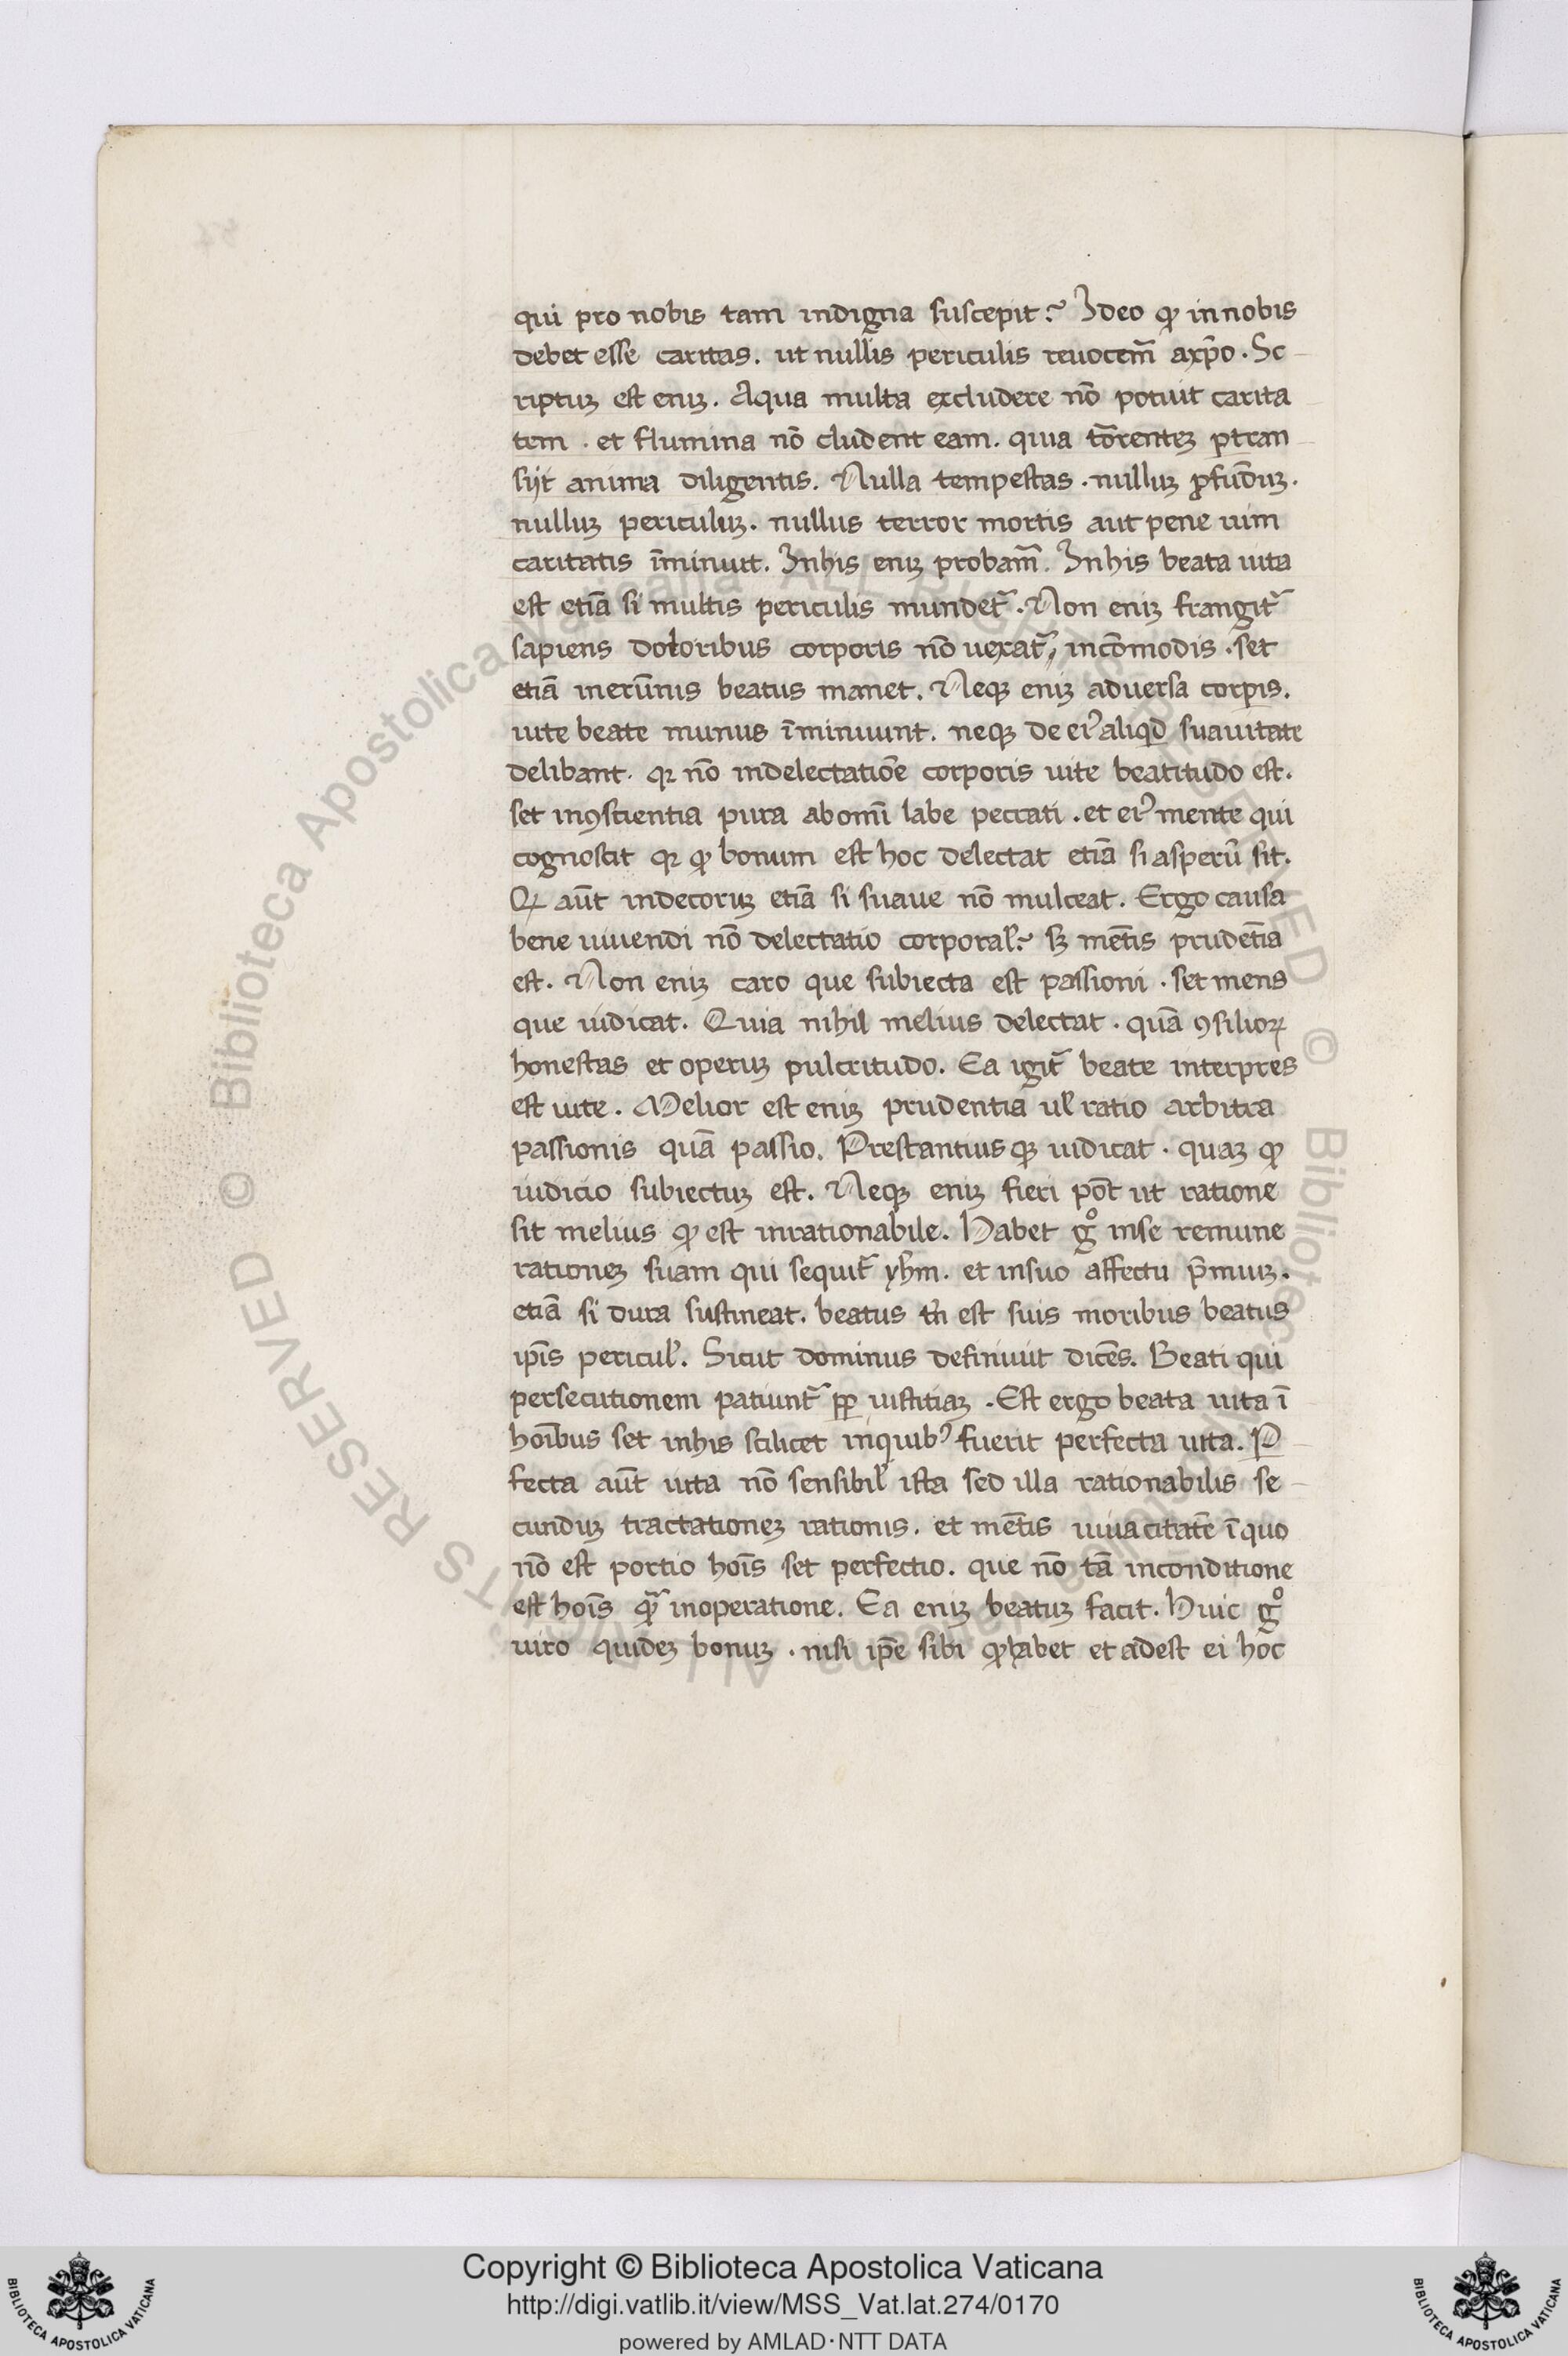 qui pro nobis tam indigna suscepit? Ideo ꝙ in nobis
debet esse caritas. ut nullis periculis reuocem̃ axp̃o. Sc
riptuꝫ est eniꝫ. Aqua multa excludere nõ potuit carita
tem. et flumina nõ cludent eam. quia tõrenteꝫ ꝑtran
siit anima diligentis. Nulla tempestas. nulluꝫ ꝓfũdiꝫ.
nulluꝫ periculuꝫ. nullus terror mortis aut pene uim
caritatis ĩminuit. In his eniꝫ probam̃. In his beata uita
est etiã si multis periculis mundet᷑. Non eniꝫ frangit᷑
sapiens doloribus corporis nõ uexat᷑ incõmodis. set
etiã in erũnis beatus manet. Neqꝫ eniꝫ aduersa corꝑis.
uite beate munus ĩminuunt. neqꝫ de eiꝰ aliqd̃ suauitate
delibant. qꝛ nõ in delectatiõe corporis uite beatitudo est.
set in ꝯscientia pura ab omĩ labe peccati. et eiꝰ mente qui
cognoscit qꝛ ꝙ bonum est hoc delectat etiã si asperũ sit.
Qꝛ aũt indecoruꝫ etiã si suaue nõ mulceat. Ergo causa
bene uiuendi nõ delectatio corporal̃? sꝫ mẽtis prudẽtia
est. Non eniꝫ caro que subiecta est passioni. set mens
que iudicat. Quia nihil melius delectat. quã ꝯsilioꝝ
honestas et operuꝫ pulcritudo. Ea igit᷑ beate interpres
est uite. Melior est eniꝫ prudentia ul̃ ratio arbitra
passionis quã passio. Prestantius qꝫ iudicat. quaꝫ ꝙ
iudicio subiectuꝫ est. Neqꝫ eniꝫ fieri põt ut ratione
sit melius ꝙ est inrationabile. Habet gͦ in se remune
rationeꝫ suam qui sequit᷑ yħm. et in suo affectu p̃miuꝫ.
etiã si dura sustineat. beatus tñ est suis moribus beatus
ip̃is pericul̃. Sicut dominus definiuit dicẽs. Beati qui
persecutionem patiunt᷑ ꝓp iustitiaꝫ. Est ergo beata uita ĩ
hoĩbus set in his scilicet in quibꝰ fuerit perfecta uita. P
fecta aũt uita nõ sensibil̃ ista sed illa rationabilis se
cunduꝫ tractationeꝫ rationis. et mẽtis uiuacitatẽ ĩ quo
nõ est portio hoĩs set perfectio. que nõ tã in conditione
est hoĩs qᷓ in operatione. Ea eniꝫ beatuꝫ facit. Huic gͦ
uiro quideꝫ bonuꝫ. nisi ip̃e sibi ꝙ habet et adest ei hoc
Copyright © Biblioteca Apostolica Vaticana
http://digi.vatlib.it/view/MSS_Vat.lat.274/0170
powered by AMLAD·NTT DATA